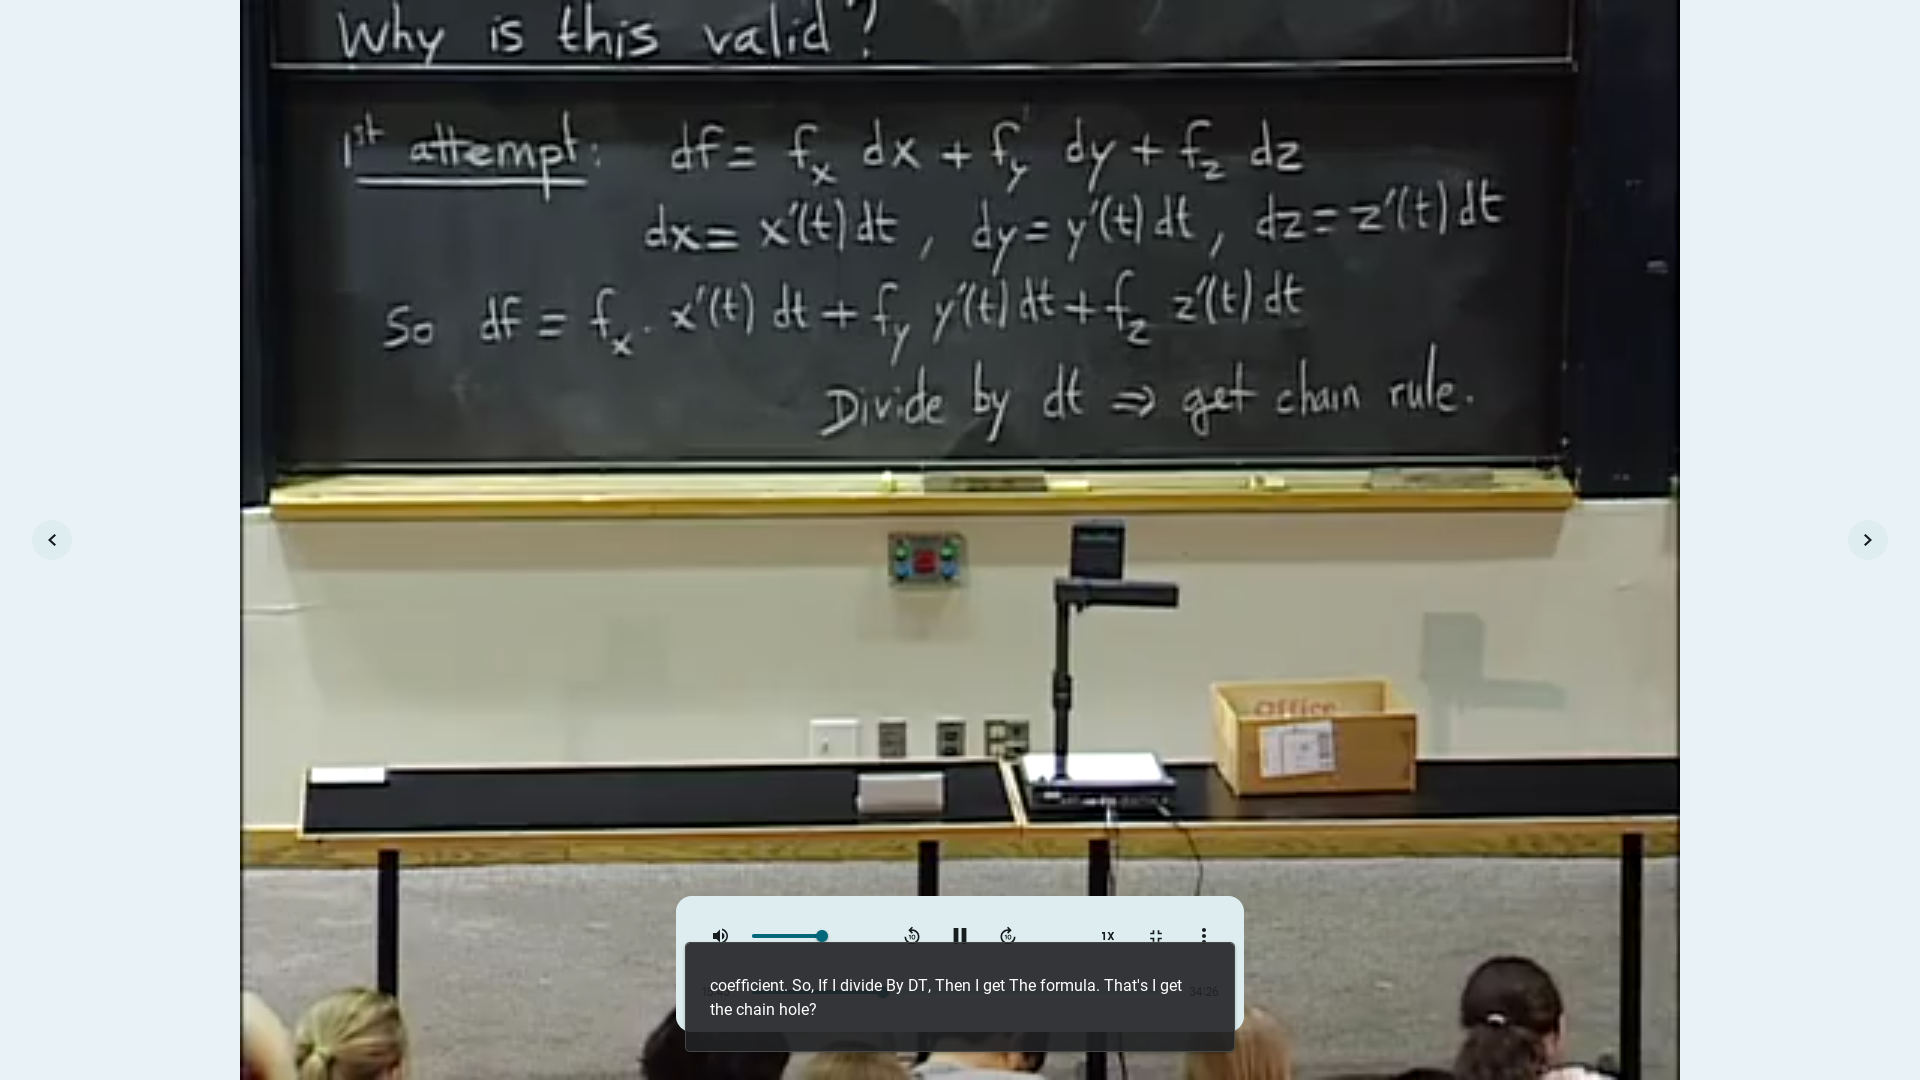 Why is this valid?
1st attempt: df = f_x dx + f_y dy + f_z dz
dx = x'(t) dt , dy = y'(t) dt , dz = z'(t) dt
So df = f_x · x'(t) dt + f_y y'(t) dt + f_z z'(t) dt
Divide by dt ⇒ get chain rule.
Office
10
10
1X
coefficient. So, If I divide By DT, Then I get The formula. That's I get
34:26
the chain hole?